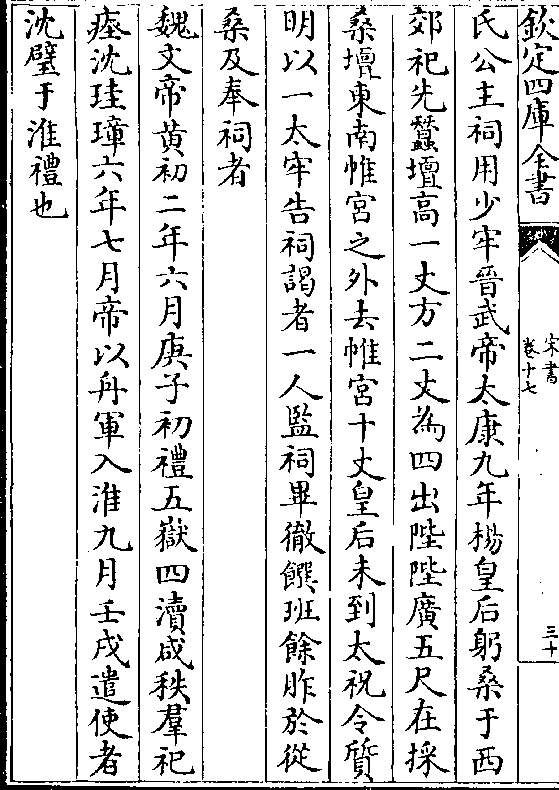 欽定四庫全書
宋書
卷十七
三十
氏公主祠用少牢晉武帝太康九年楊皇后躬桑于西
郊祀先蠶壇高一丈方二丈為四出陛陛廣五尺在採
桑壇東南帷宮之外去帷宮十丈皇后未到太祝令質
明以一太牢告祠謁者一人監祠畢徹饌班餘胙於從
桑及奉祠者
魏文帝黃初二年六月庚子初禮五嶽四瀆咸秩羣祀
瘞沈珪璋六年七月帝以舟軍入淮九月壬戌遣使者
沈璧于淮禮也